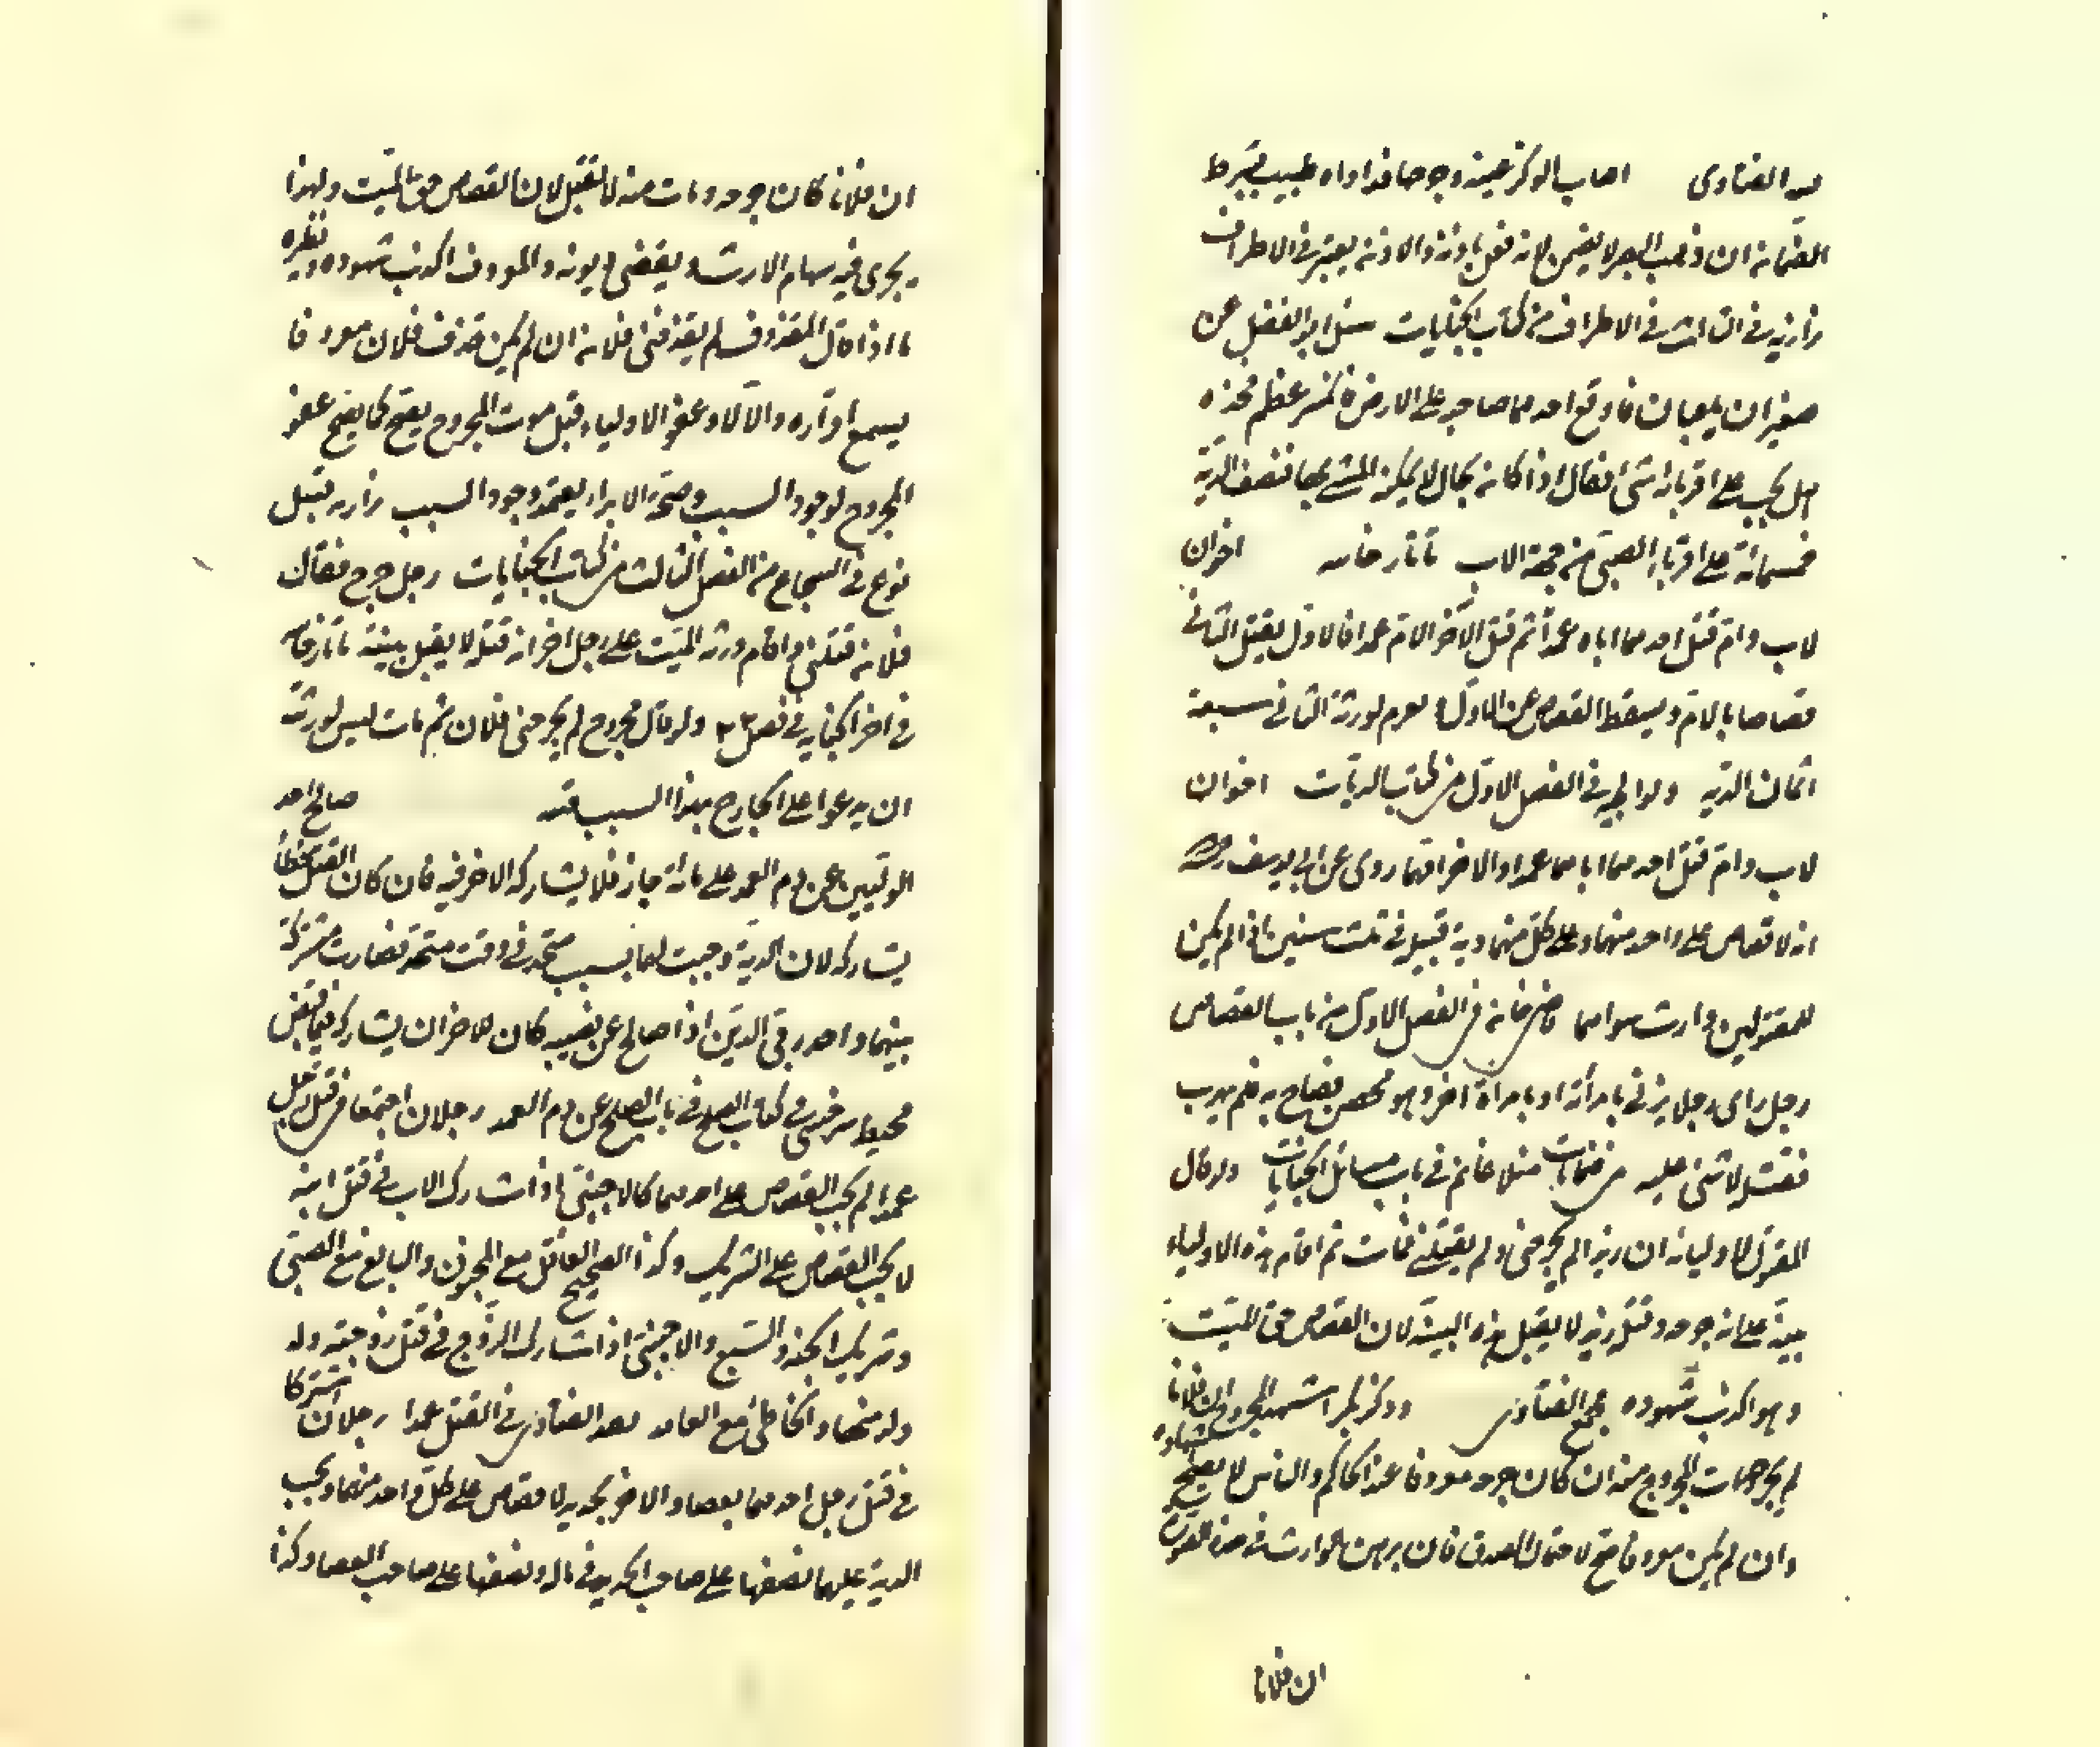 الفتاوى اصاب الوكز عينه وجرحها فداواه طبيب بشرط
الضمان ان ذهب البصر لا يضمن لانه فعل باذنه والاذن يعتبر في الاطراف
بزازيه في الثالث في الاطراف من كتاب الجنايات سئل ابو الفضل عن
صغيران يلعبان فاوقع احدهما صاحبه على الارض فانكسر عظم فخذه
هل يجب على اقربائه شئ فقال اذا كان بحال لا يمكنه المشي بها فنصف الدية
خمسمائة على اقرباء الصبي من جهة الاب تاتارخانيه اخوان
لاب وام قتل احدهما اباه عمدا ثم قتل الآخر الام عمدا فالاول يقتل الثاني
قصاصا بالام ويسقط القصاص عن الاول ويغرم لورثة الثاني سبعة
اثمان الدية ولوالجيه في الفصل الاول من كتاب الديات اخوان
لاب وام قتل احدهما اباهما عمدا والاخر امهما روى عن ابي يوسف رحمه
انه لا قصاص على واحد منهما وعلى كل منهما دية قتيله في ثلث سنين اذا لم يكن
للمقتولين وارث سواهما قاضيخان في الفصل الاول من باب القصاص
رجل راى رجلا يزني بامرأته او بامرأة اخر وهو محصن فصاح به فلم يهرب
فقتله لا شئ عليه من ضمانات منلا غانم في باب مسائل الجنايات ولو قال
المقتول لاوليائه ان زيدا لم يجرحني ولم يقتلني فمات ثم اقام هذه الاولياء
بينة على انه جرحه وقتله زيد لا يقبل هذه البينة لان القصاص حق الميت
وهو اكذب شهوده مجمع الفتاوى وذكر بكر اشهد المجروح ان فلانا
لم يجرحه ومات المجروح منه ان كان جرحه معروفا عند الحاكم والناس لا يصح اشهاده
وان لم يكن معروفا صح لاحتمال الصدق فان برهن الوارث في هذه الصورة
ان فلانا
ان فلانا كان جرحه ومات منه لا يقبل لان القصاص حق الميت ولهذا
يجرى فيه سهام الارث ويقضى ديونه والموروث اكذب شهوده ونظيره
ما اذا قال المقذوف لم يقذفني فلان ان لم يكن قذف فلان معروفا
يسمع اقراره والا لا وعفو الاولياء قبل موت المجروح يصح كما يصح عفو
المجروح لوجود السبب وصحة الابراء يعتمد وجود السبب بزازيه قبيل
نوع في الشجاج من الفصل الثالث من كتاب الجنايات رجل جرح فقال
فلان قتلني واقام ورثة الميت على رجل اخر انه قتله لا يقبل بينته تاتارخانيه
في اخر الجنايه في فصل ٢٣ ولو قال مجروح لم يجرحني فلان ثم مات ليس لورثته
ان يدعوا على الجارح بهذا السبب صالح احد
الوليين عن دم العمد على مائة جاز فلا يشاركه الاخر فيه فان كان القتل خطأ
يشاركه لان الدية وجبت لهما بسبب متحد في وقت متحد فصارت مشتركة
بينهما واحد ربي الدين اذا صالح عن نصيبه كان للاخر ان يشاركه فيما قبض
محيط سرخسي في كتاب الصلح في باب الصلح عن دم العمد رجلان اجتمعا في قتل رجل
عمدا لم يجب القصاص على احدهما كالاجنبي اذا شارك الاب في قتل ابنه
لا يجب القصاص على الشريك وكذا الصحيح العاقل مع المجنون والبالغ مع الصبي
وشريك الحية والسبع والاجنبي اذا شارك الزوج في قتل زوجته وله
ولد منها والخاطئ مع العامد الفتاوى في القتل عمدا رجلان اشتركا
في قتل رجل احدهما بعصا والاخر بحديد لا قصاص على كل واحد منهما ويجب
الدية عليهما نصفها على صاحب الحديد في ماله ونصفها على صاحب العصا وكذا